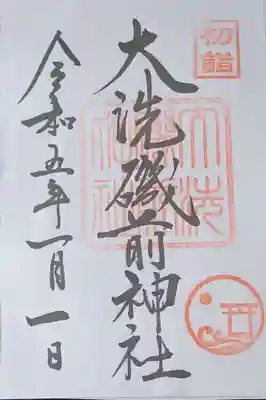 初詣
大洗磯前神社
令和五年一月一日